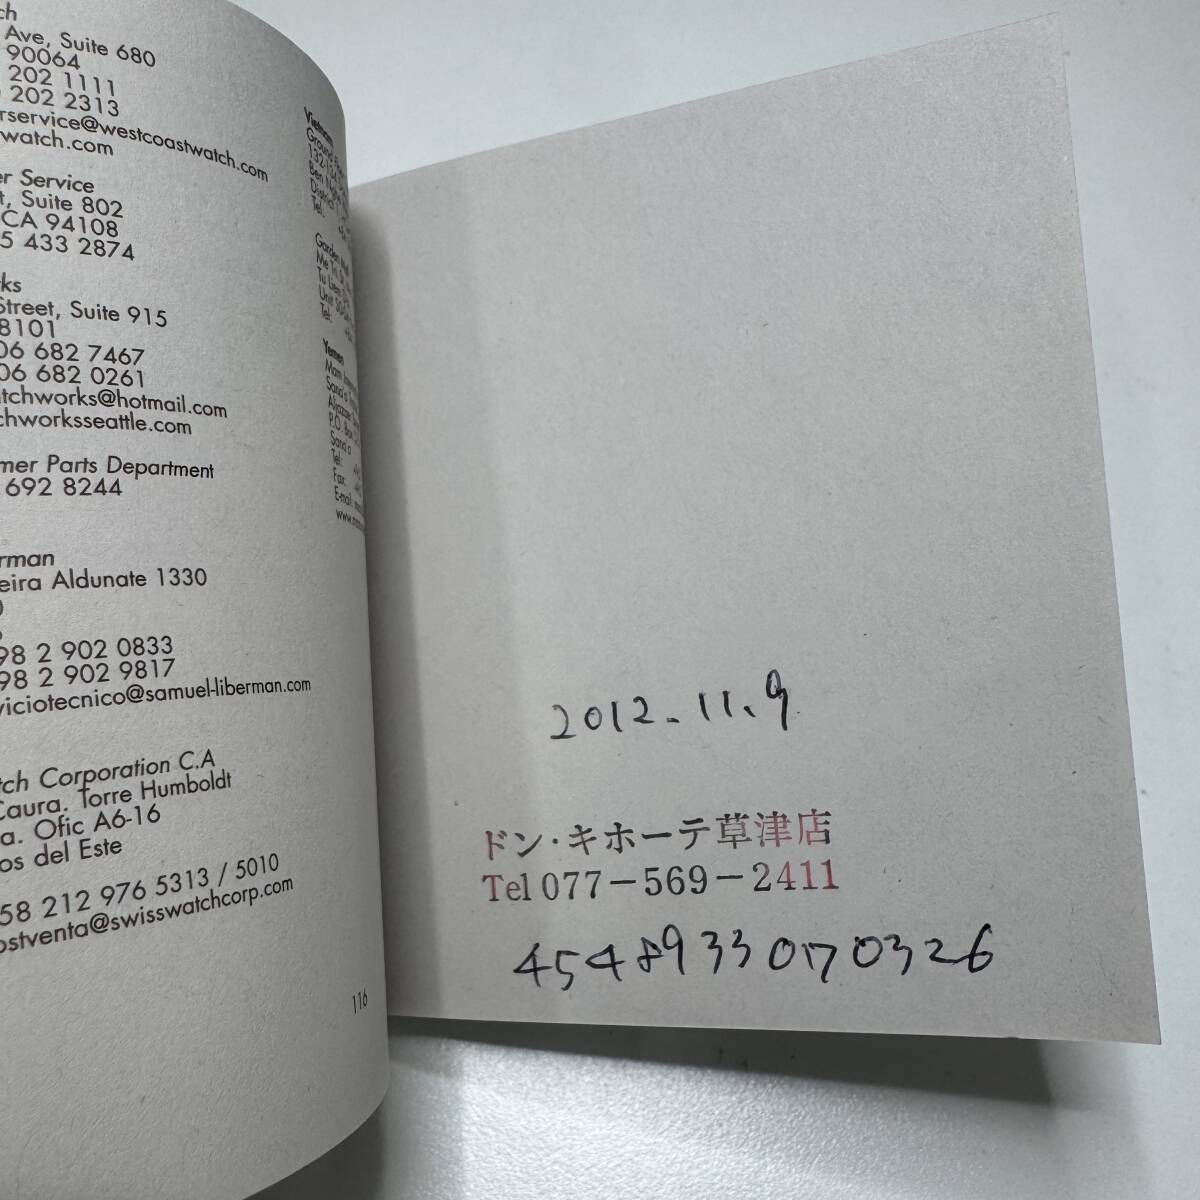 ch
Ave, Suite 680
90064
202 1111
202 2313
rservice@westcoastwatch.com
watch.com
er Service
t, Suite 802
CA 94108
5 433 2874
ks
Street, Suite 915
8101
06 682 7467
06 682 0261
tchworks@hotmail.com
chworksseattle.com
mer Parts Department
692 8244
rman
eira Aldunate 1330
98 2 902 0833
98 2 902 9817
viciotecnico@samuel-liberman.com
tch Corporation C.A
Caura. Torre Humboldt
a. Ofic A6-16
os del Este
58 212 976 5313 / 5010
ostventa@swisswatchcorp.com
116
Vietnam
Ground
132-134
Ben Nghe
District 1,
Tel:
Garden Mall
Me Tri,
Tu Liem
Unit
Tel:
Yemen
Mam
Sana's
P.O. Box
Sana'a
Tel:
Fax:
E-mail:
www.
2012.11.9
ドン・キホーテ草津店
Tel 077-569-2411
4548933070326